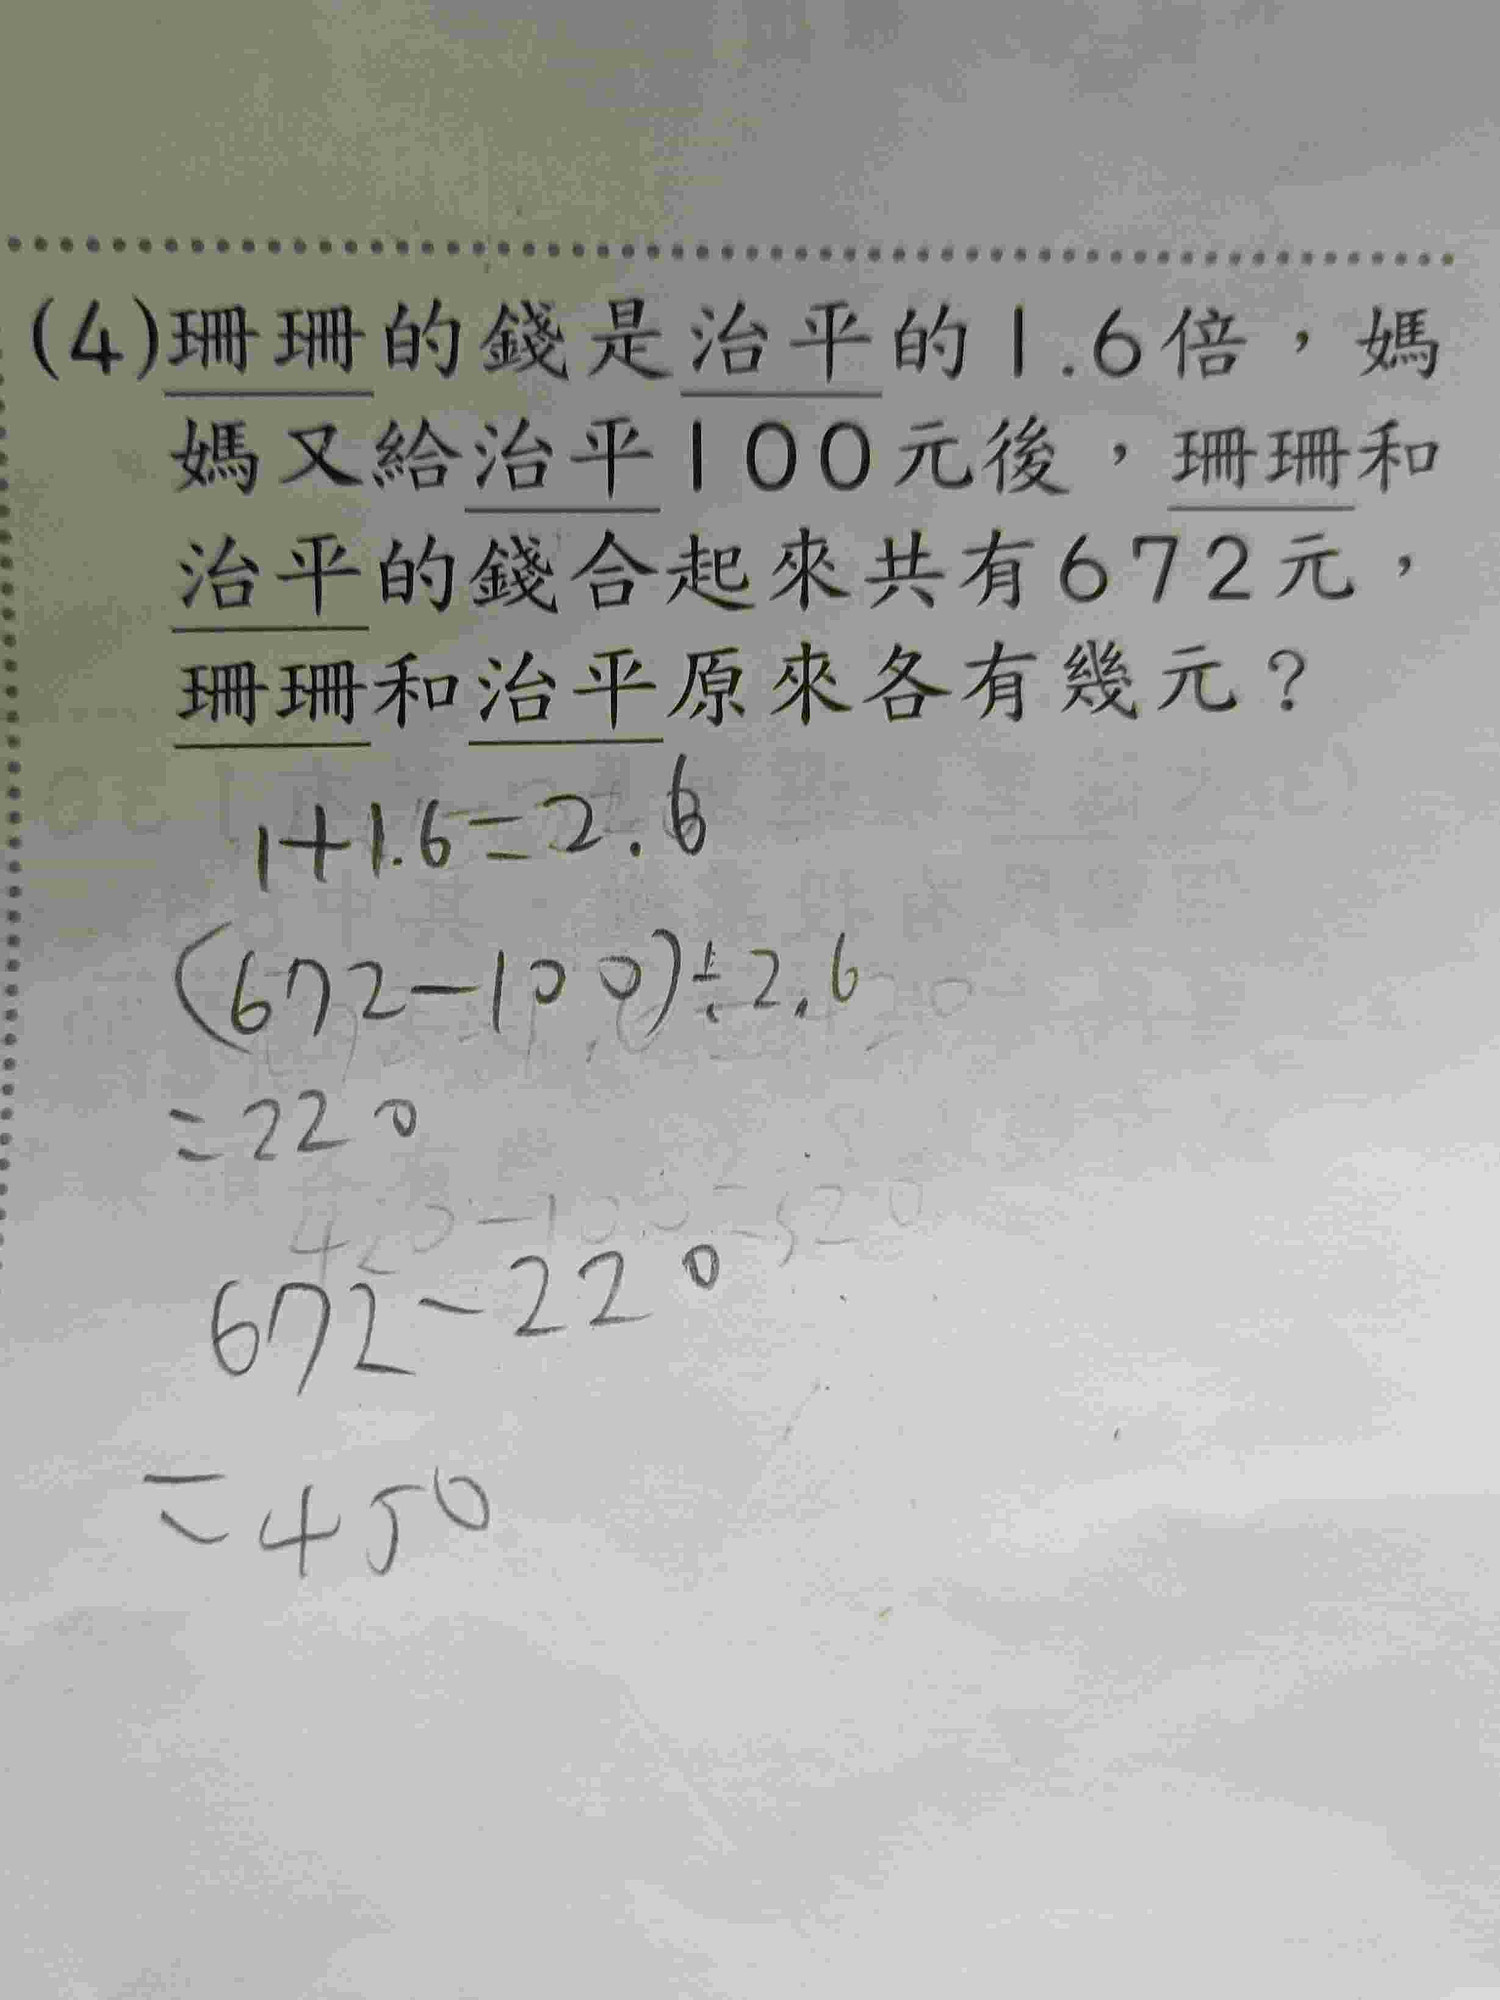 (4)珊珊的錢是治平的1.6倍，媽
媽又給治平100元後，珊珊和
治平的錢合起來共有672元，
珊珊和治平原來各有幾元？
1+1.6=2.6
(672-100)÷2.6
=220
420-100=320
672-220
=450